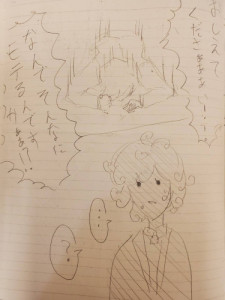 おしえて
くださぁぁぁい…!!
なんでそんなに
モテるんですかぁぁ!?
…
…?